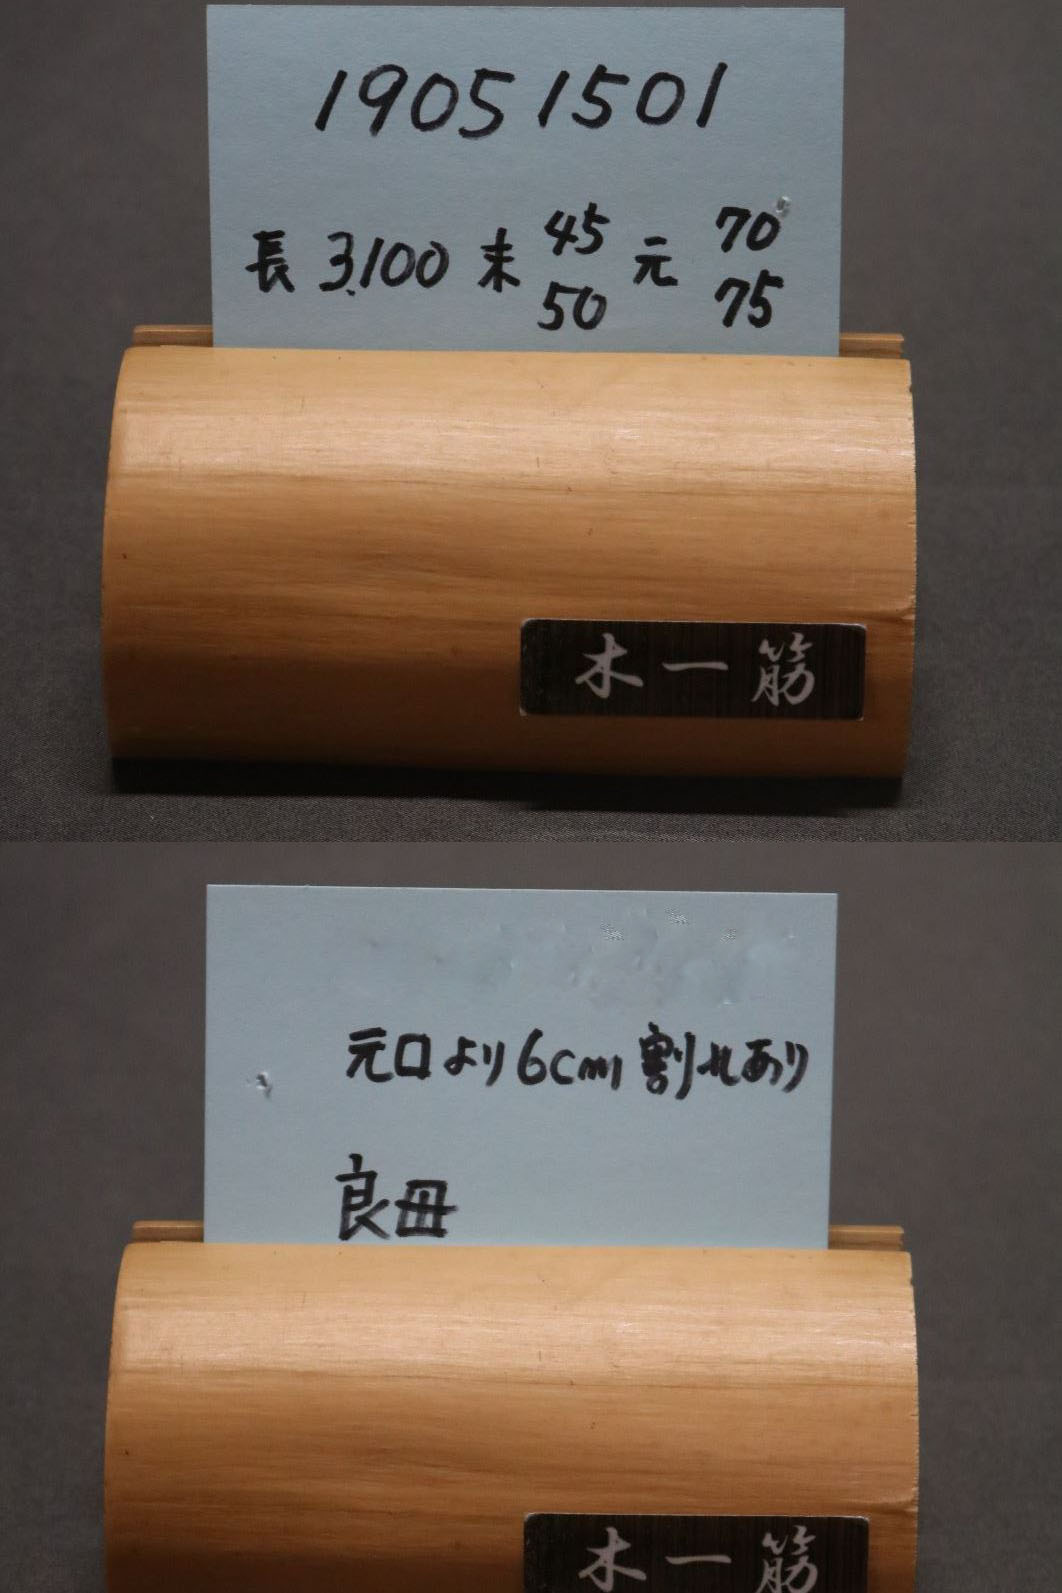 19051501
長 3,100 末 45 50 元 70 75
木一筋
元口より6cm割れあり
良母
木一筋